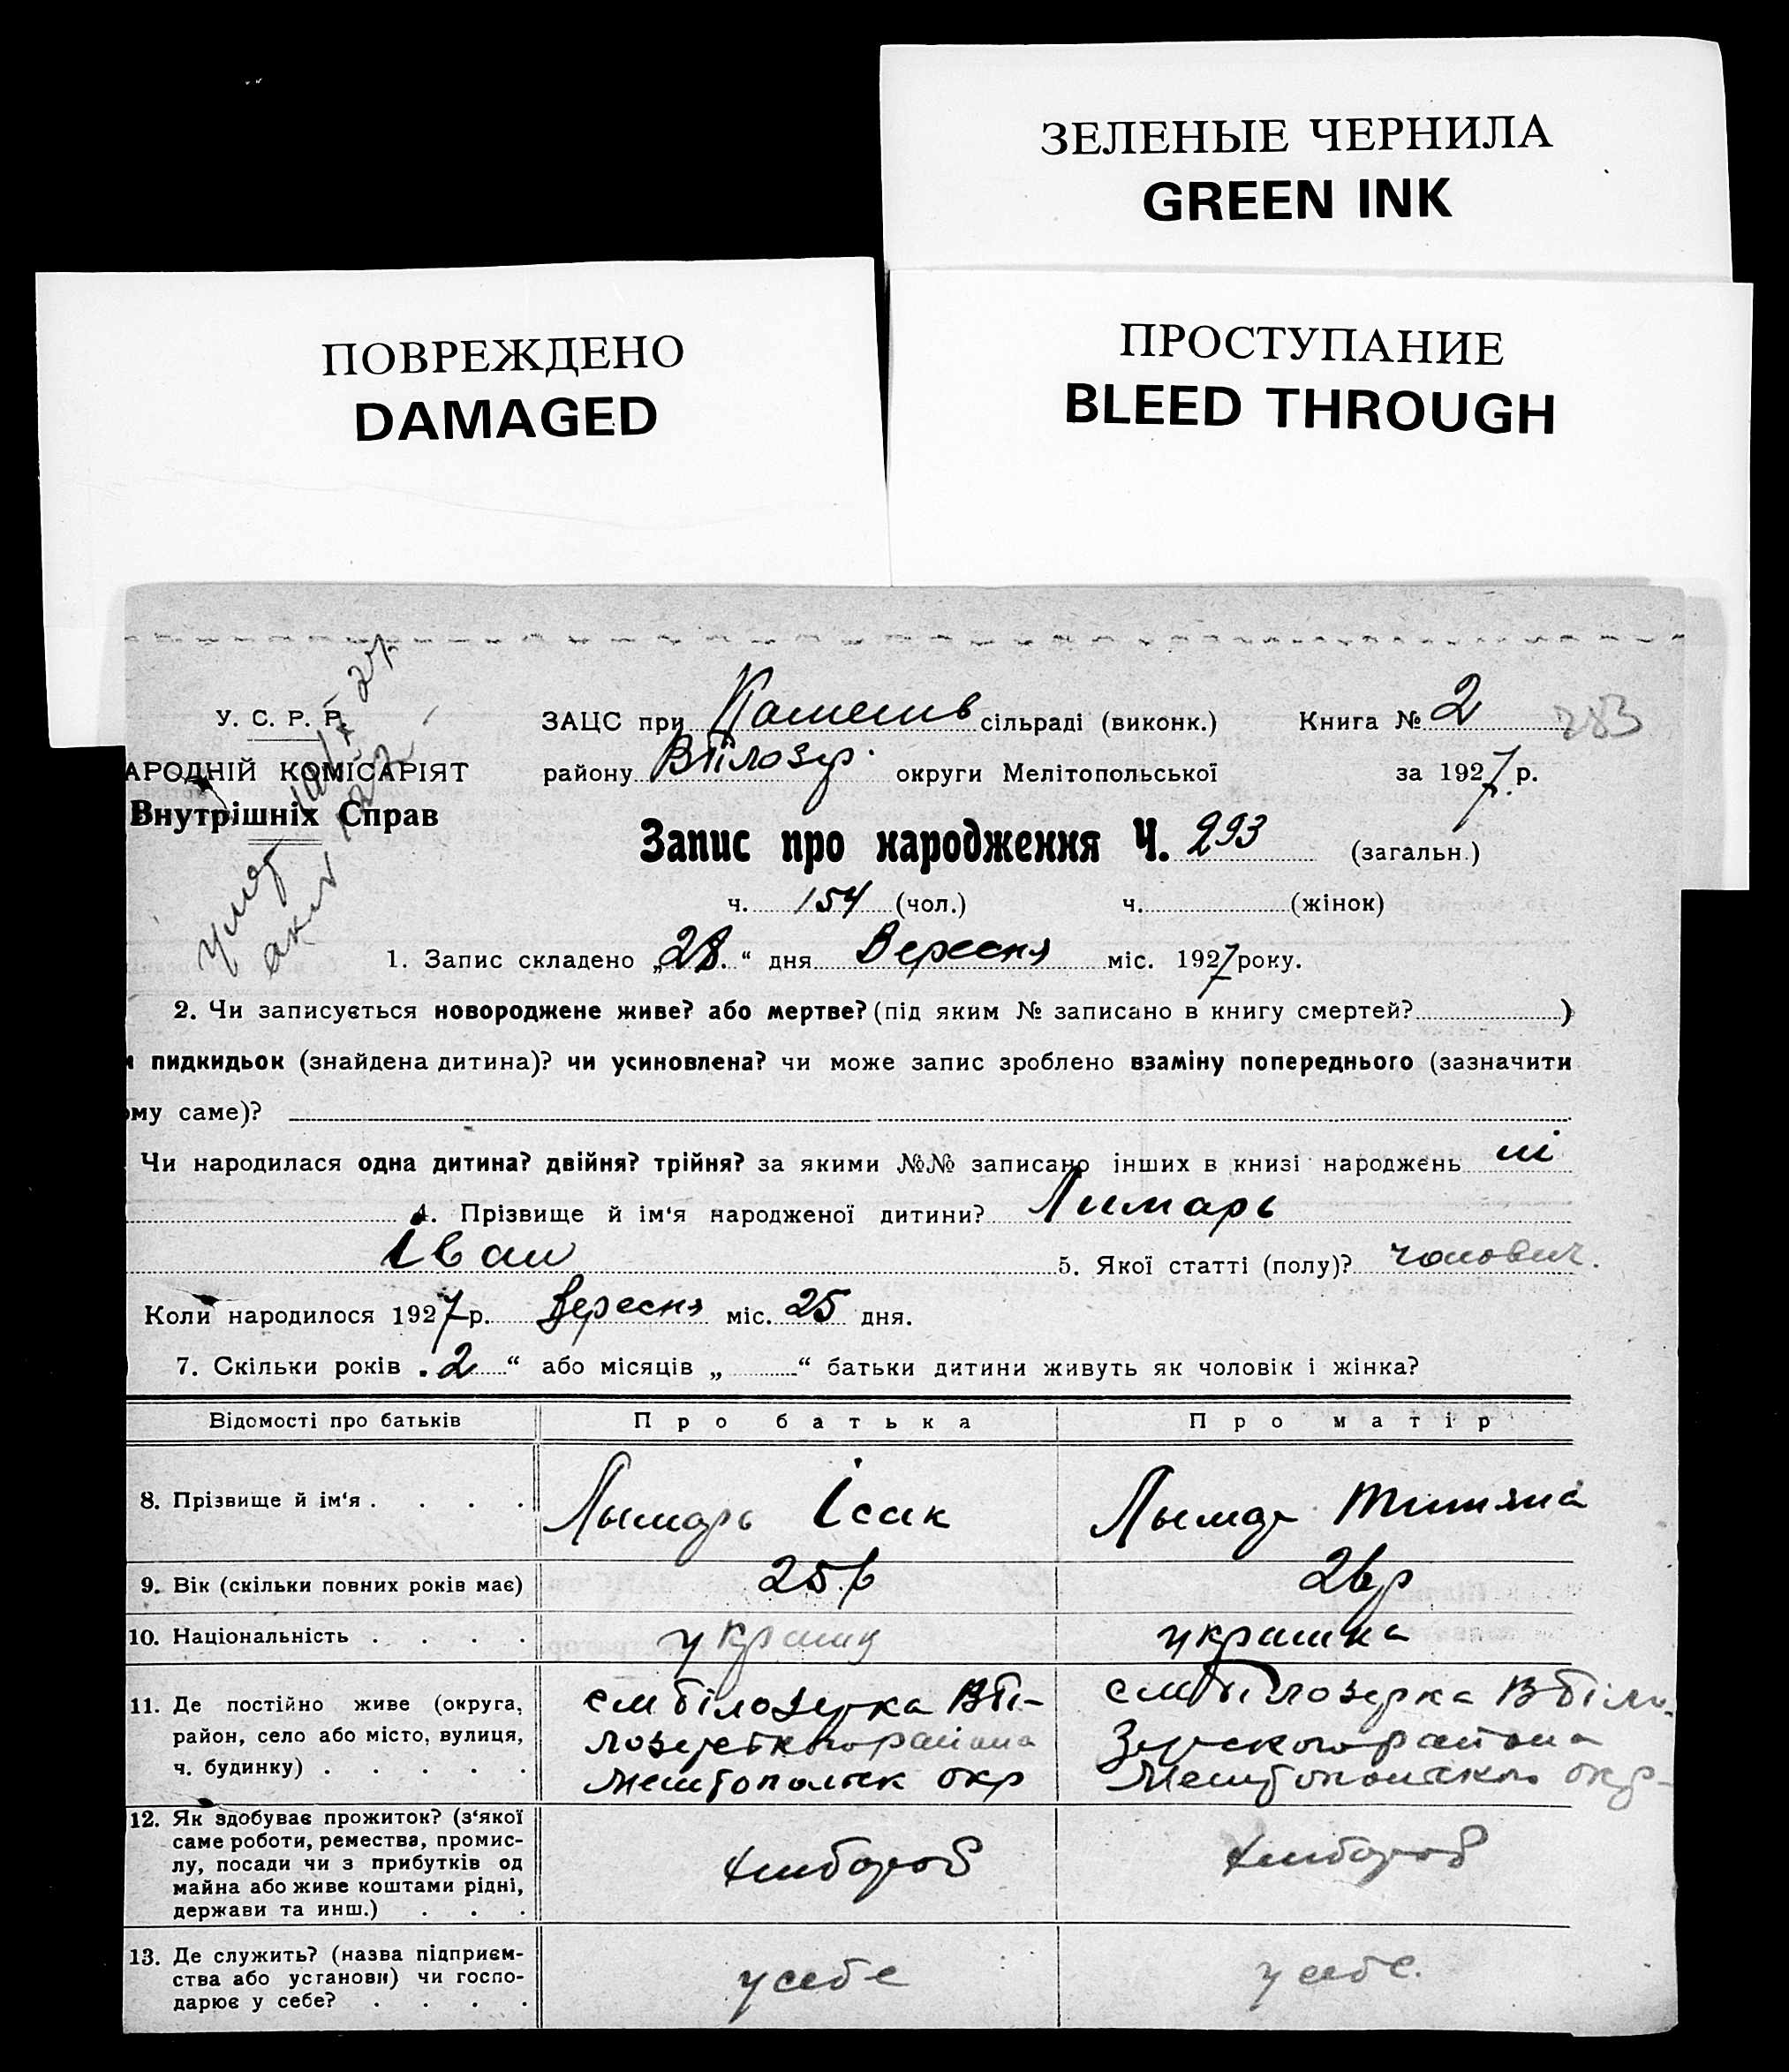 ЗЕЛЕНЫЕ ЧЕРНИЛА
GREEN INK
ПОВРЕЖДЕНО
DAMAGED
ПРОСТУПАНИЕ
BLEED THROUGH
У. С. Р. Р.
ЗАЦС при сільраді (виконк.) Книга № 2 283
АРОДНІЙ КОМІСАРІЯТ
району Вбілозер. округи Мелітопольської за 1927 р.
Внутрішніх Справ
Запис про народження Ч. 293 (загальн.)
ч. 154 (чол.) ч. (жінок)
1. Запис складено „28.“ дня Вересня міс. 1927 року.
2. Чи записується новороджене живе? або мертве? (під яким № записано в книгу смертей? )
и пидкидьок (знайдена дитина)? чи усиновлена? чи може запис зроблено взаміну попереднього (зазначити
ому саме)?
Чи народилася одна дитина? двійня? трійня? за якими №№ записано інших в книзі народжень ні
4. Прізвище й ім‘я народженої дитини? Лимарь
Іван 5. Якої статті (полу)? чоловіч.
Коли народилося 1927 р. Вересня міс. 25 дня.
7. Скільки років „2“ або місяців „ “ батьки дитини живуть як чоловік і жінка?
Відомості про батьків Про батька Про матір
8. Прізвище й ім‘я . . . . Лымарь Ісак Лымарь
9. Вік (скільки повних років має) 25 р 26 р
10. Національність . . . . україниц українка
11. Де постійно живе (округа,
район, село або місто, вулиця,
ч. будинку) . . . . .
см білозерка Вбі-
лозерського района
Мелітопольск окр
см білозерка Вбіло-
зерського района
Мелітопольского окр-
12. Як здобуває прожиток? (з‘якої
саме роботи, ремества, промис-
лу, посади чи з прибутків од
майна або живе коштами рідні,
держави та инш.) . . .
хлібороб хлібороб
13. Де служить? (назва підприєм-
ства або установи) чи госпо-
дарює у себе? . . . .
у себе у себе.